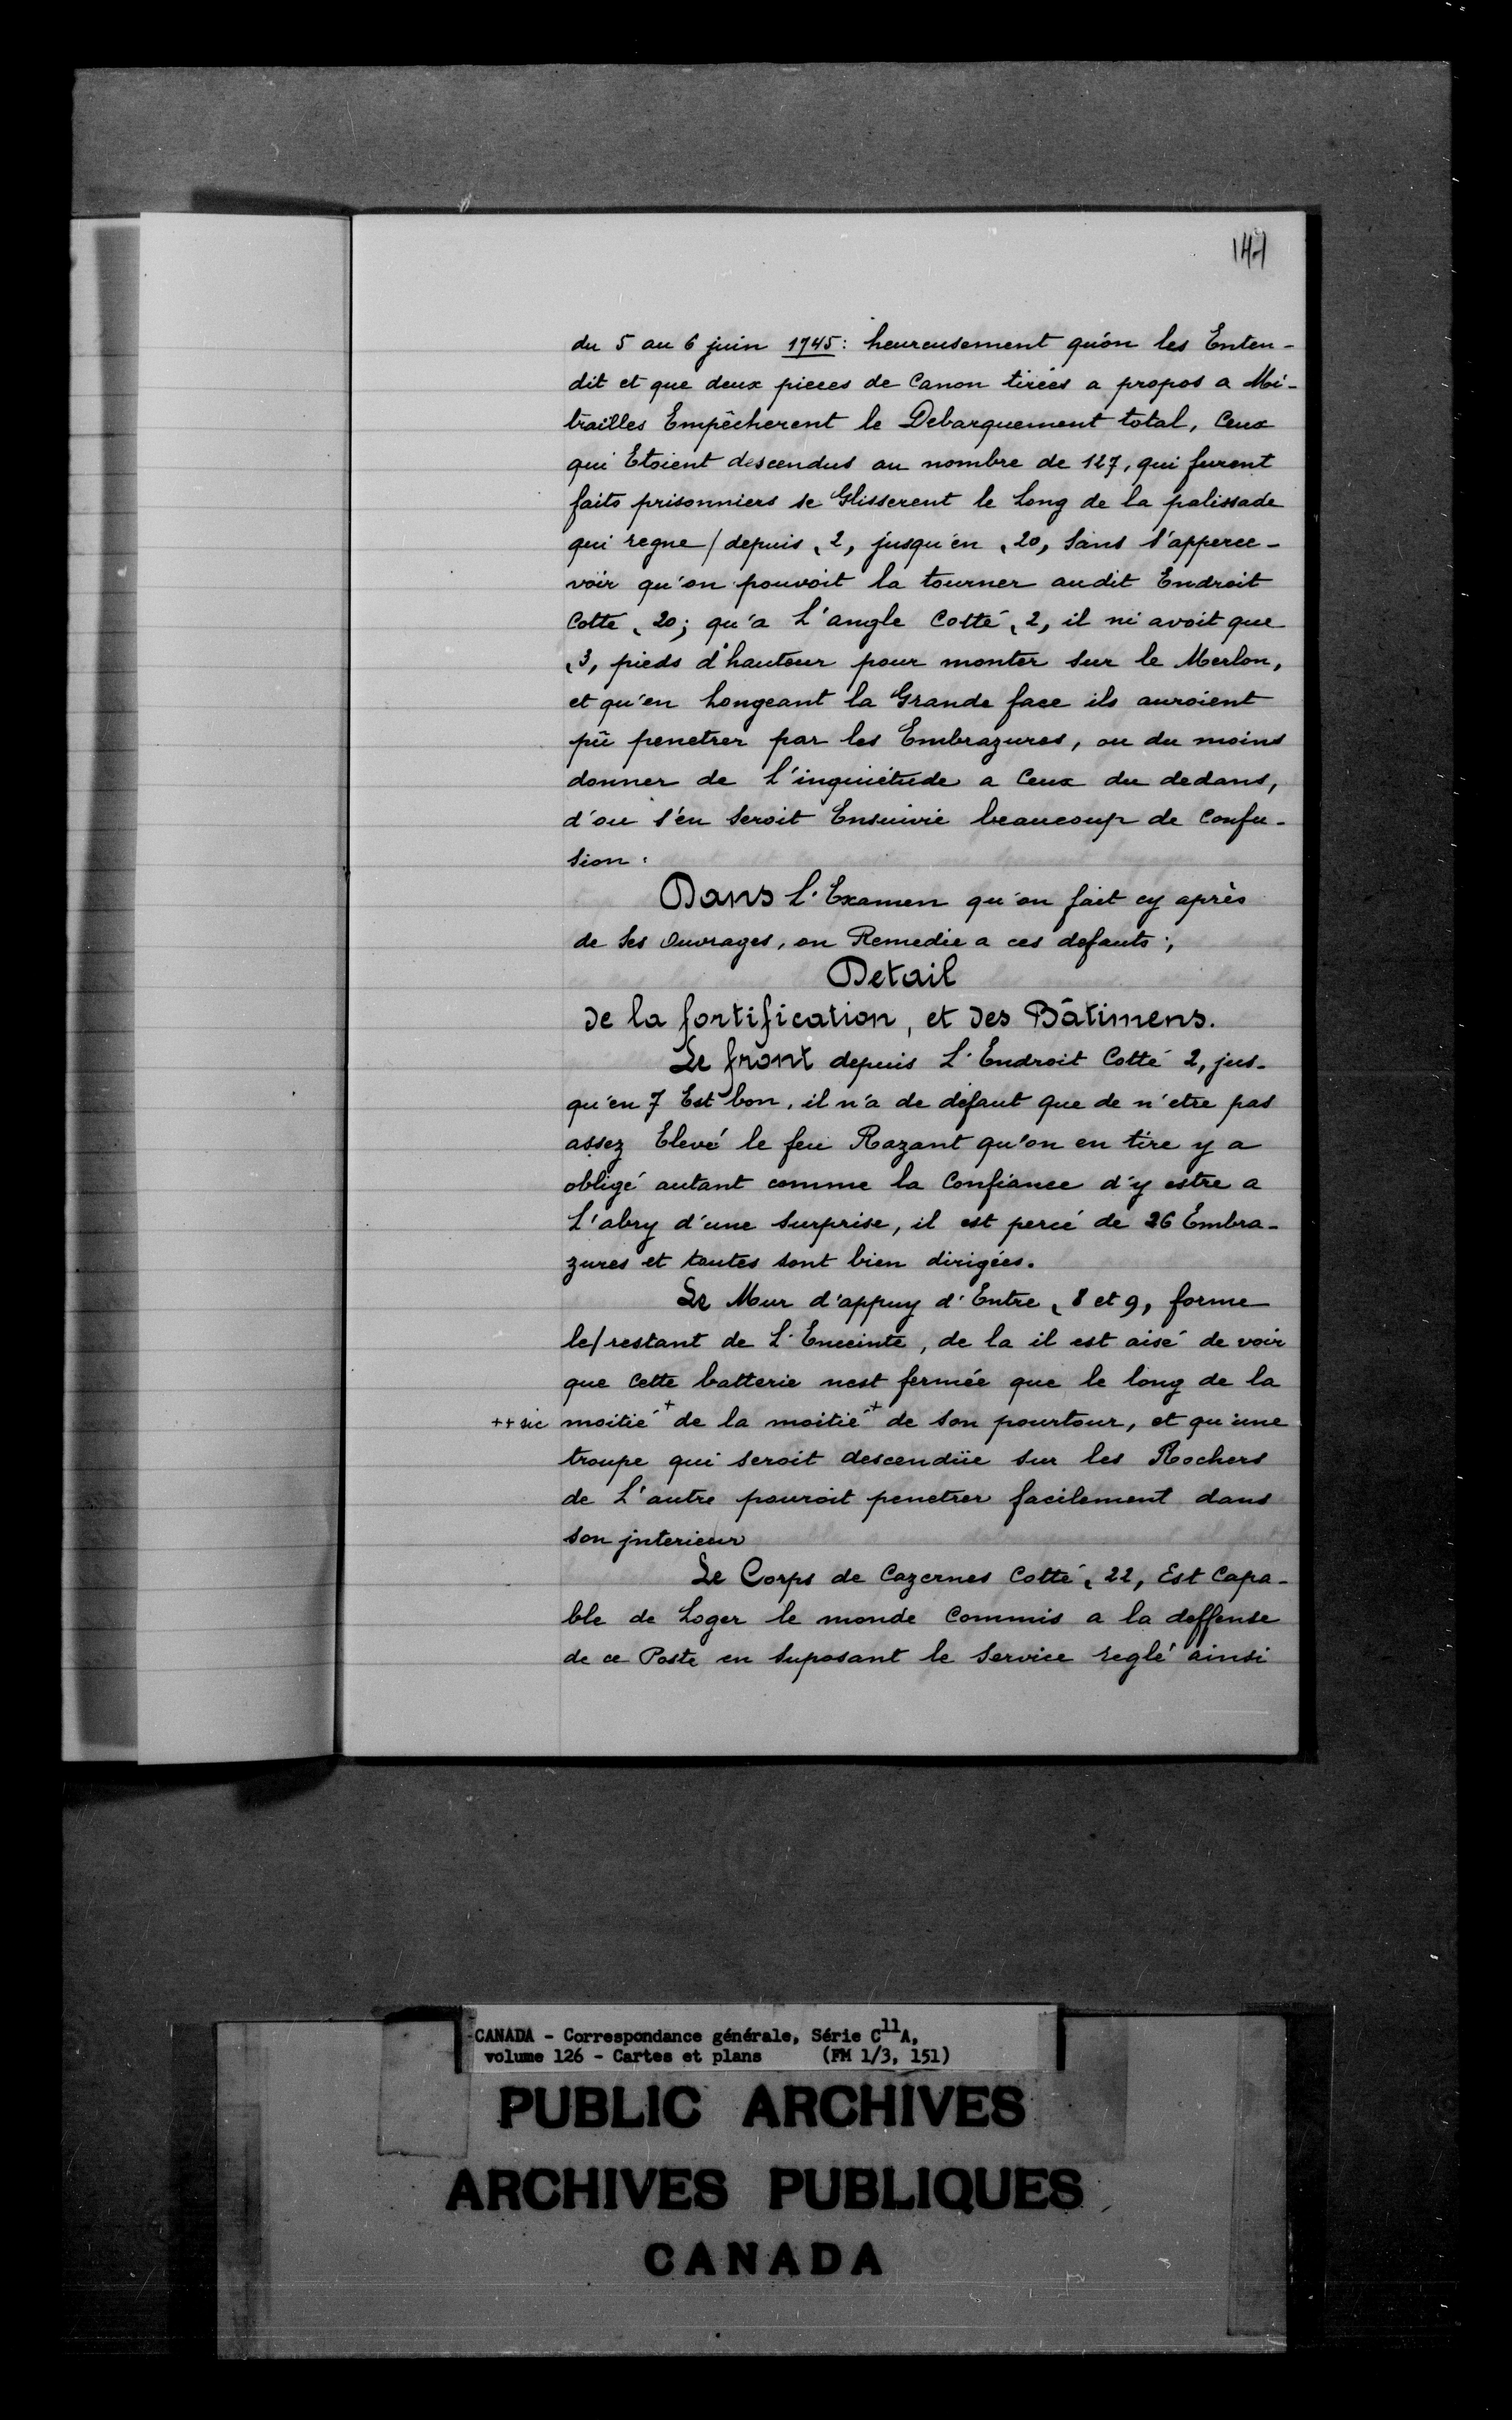 147
du 5 au 6 juin 1745: heureusement qu'on les Enten-
dit et que deux pieces de Canon tirées a propos a Mi-
trailles Empêcherent le Debarquement total, Ceux
qui Etoient descendus au nombre de 127, qui furent
faits prisonniers se Glisserent le Long de la palissade
qui regne / depuis, 2, jusqu'en, 20, Sans s'apperce-
voir qu'on pouvoit la tourner audit Endroit
Cotté, 20; qu'a L'angle Cotté, 2, il ni avoit que
,3, pieds d'hauteur pour monter sur le Merlon,
et qu'en Longeant la Grande face ils auroient
pû penetrer par les Embrazures, ou du moins
donner de L'inquiétude a Ceux du dedans,
d'ou s'en Seroit Ensuivie beaucoup de Confu-
sion.
Dans L'Examen qu'on fait cy après
de Ses Ouvrages, on Remedie a ces defauts;
Detail
de la fortification, et des Bâtimens.
Le front depuis L'Endroit Cotté 2, jus-
qu'en 7 Est bon, il n'a de defaut que de n'etre pas
assez Elevé le feu Razant qu'on en tire y a
obligé autant comme la Confiance d'y estre a
L'abry d'une Surprise, il est percé de 26 Embra-
zures et toutes sont bien dirigées.
Le Mur d'appuy d'Entre, 8 et 9, forme
le / restant de L'Enceinte, de la il est aisé de voir
que Cette batterie nest fermée que le long de la
++ sic moitié + de la moitié + de Son pourtour, et qu'une
troupe qui seroit descendüe sur les Rochers
de L'autre pouroit penetrer facilement dans
son jnterieur
Le Corps de Cazernes Cotté, 22, Est Capa-
ble de Loger le monde Commis a la deffense
de ce Poste en Suposant le Service reglé ainsi
CANADA - Correspondance générale, Série C11A,
volume 126 - Cartes et plans (FM 1/3, 151)
PUBLIC ARCHIVES
ARCHIVES PUBLIQUES
CANADA